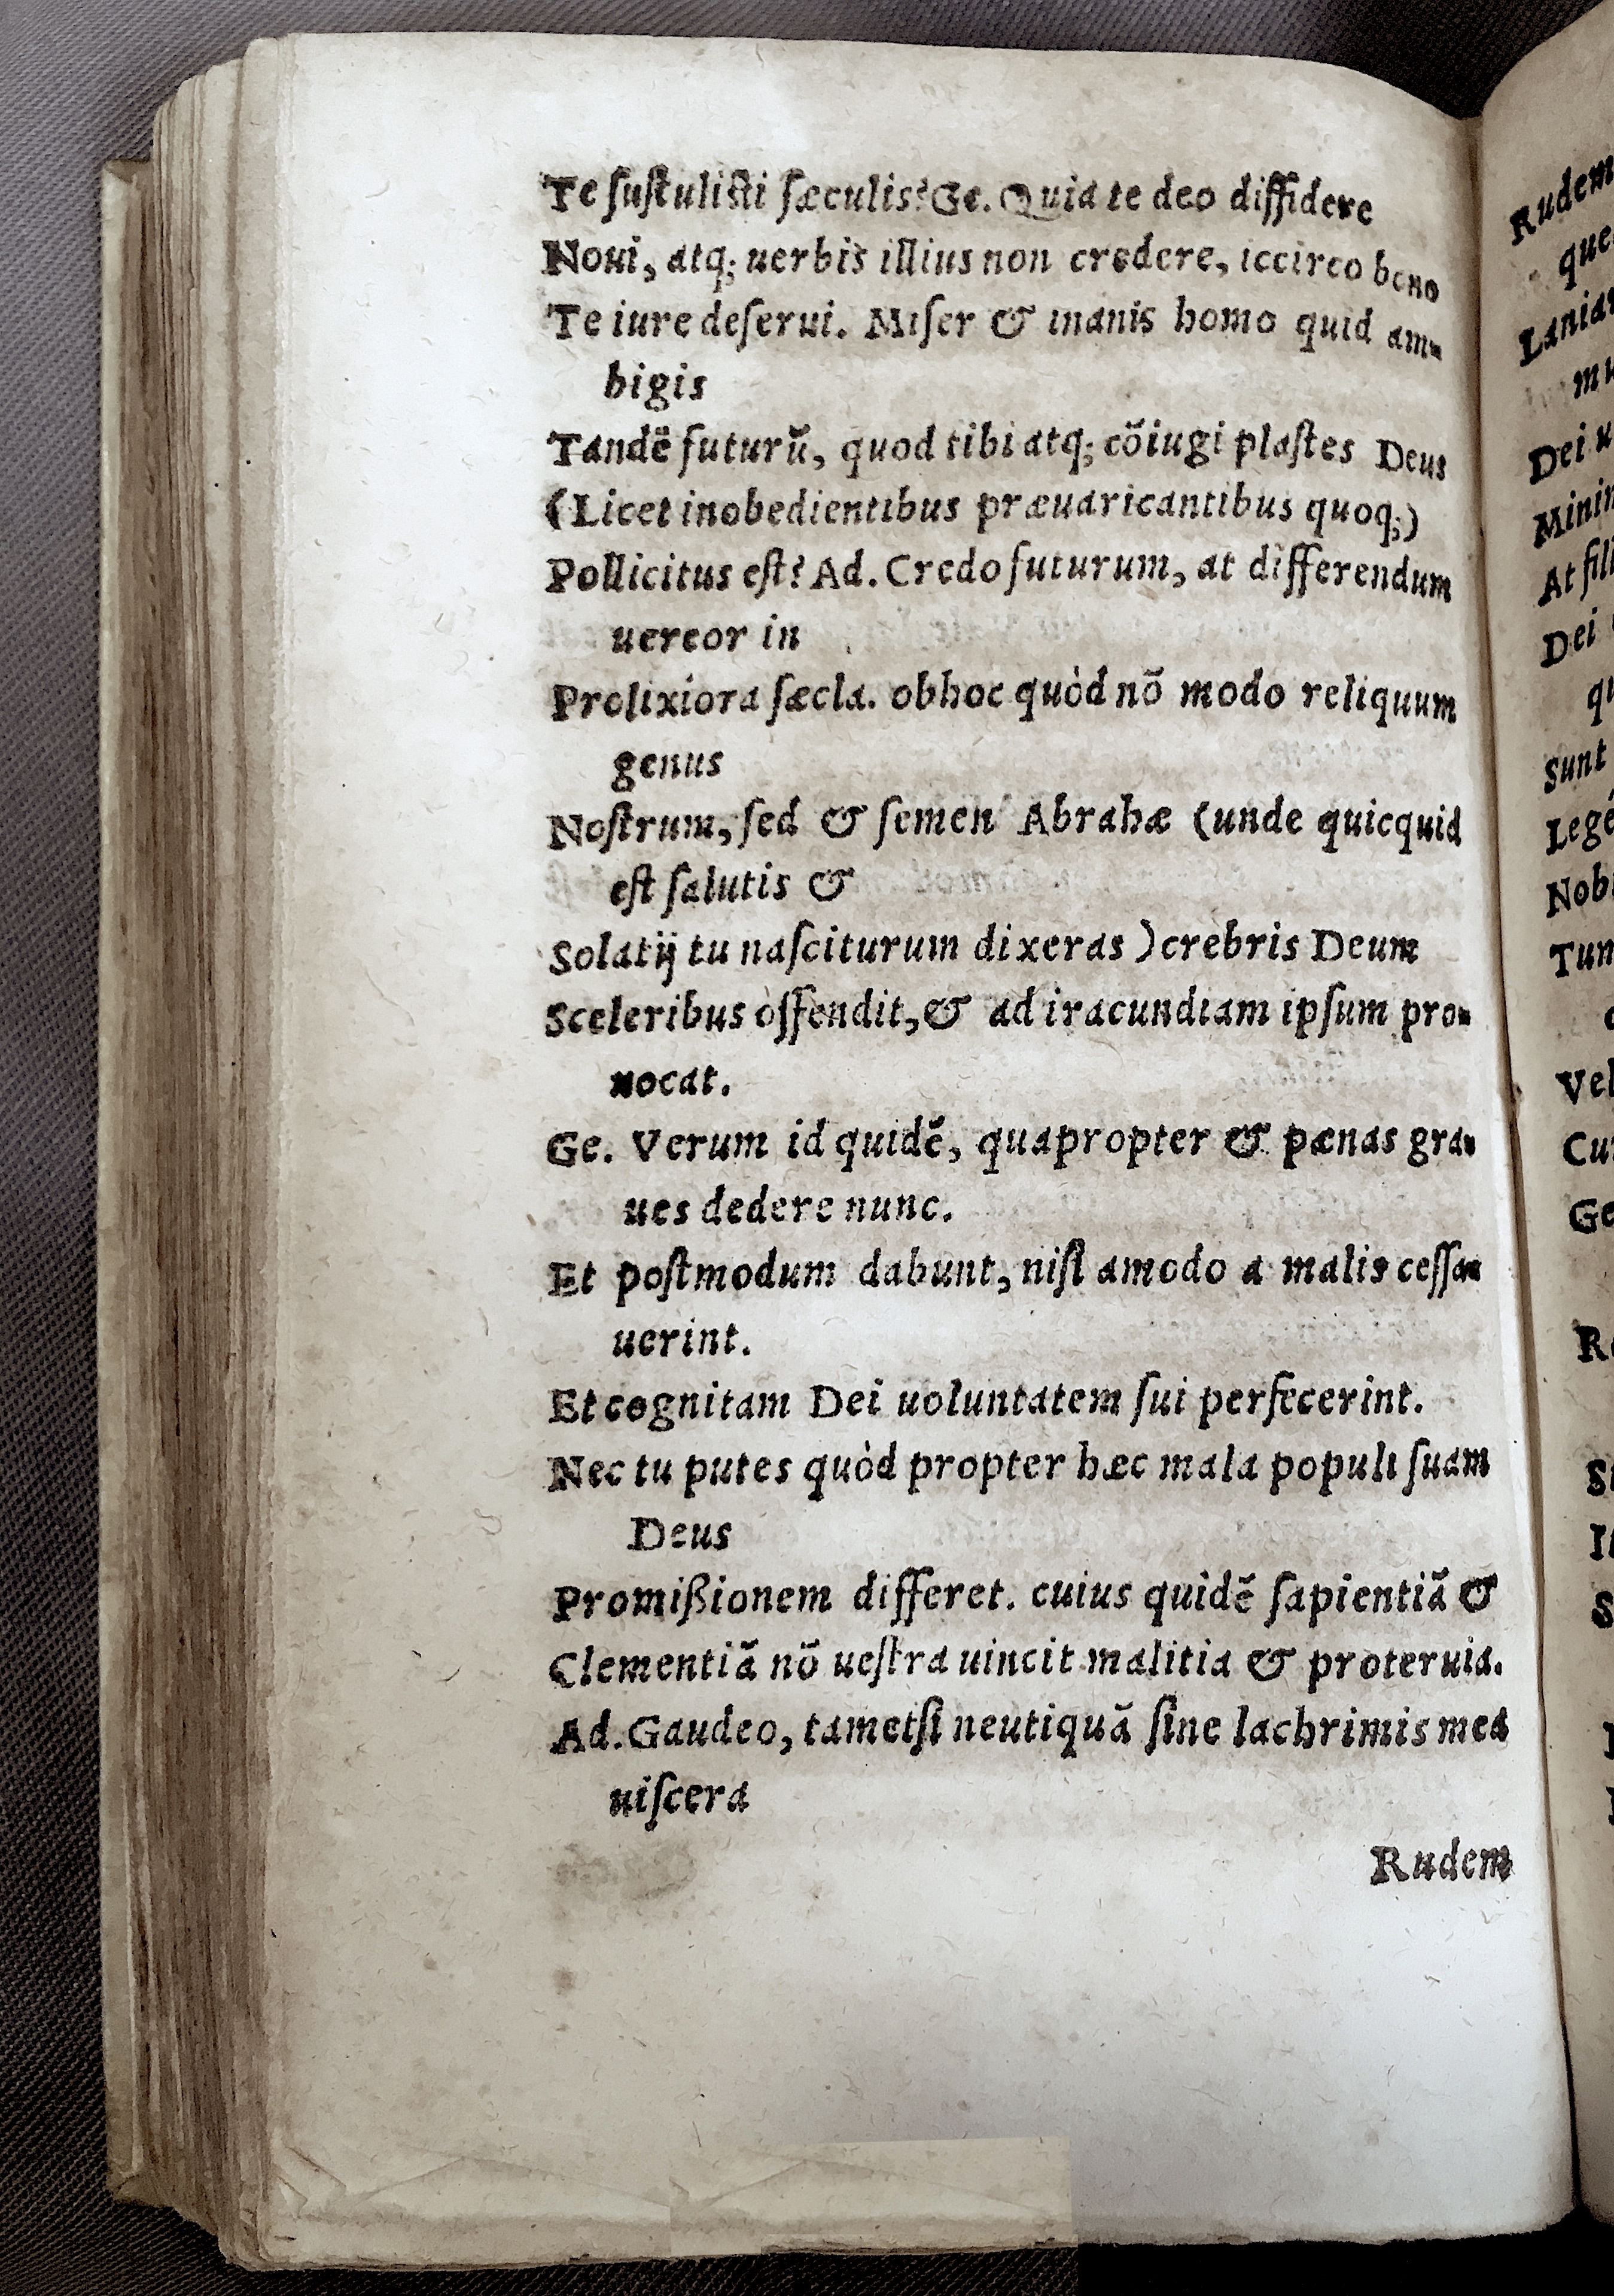 Te ſuſtuliſti ſæculis? Ge. Quia te deo diffidere
Noui, atq; uerbis illius non credere, iccirco bono
Te iure deſerui. Miſer & inanis homo quid am-
bigis
Tandẽ futurũ, quod tibi atq; cõiugi plaſtes Deus
(Licet inobedientibus præuaricantibus quoq;)
Pollicitus eſt? Ad. Credo futurum, at differendum
uereor in
Prolixiora ſæcla. obhoc quòd nõ modo reliquum
genus
Noſtrum, ſed & ſemen Abrahæ (unde quicquid
eſt ſalutis &
Solatij tu naſciturum dixeras) crebris Deum
Sceleribus offendit, & ad iracundiam ipſum pro-
uocat.
Ge. Verum id quidẽ, quapropter & pœnas gra-
ues dedere nunc.
Et poſtmodum dabunt, niſi amodo a malis ceſſa-
uerint.
Et cognitam Dei uoluntatem ſui perfecerint.
Nec tu putes quòd propter hæc mala populi ſuam
Deus
Promißionem differet. cuius quidẽ ſapientiã &
Clementiã nõ ueſtra uincit malitia & proteruia.
Ad. Gaudeo, tametſi neutiquã ſine lachrimis mea
uiſcera
Rudem
Rudem
que
Dei u
At fili
Dei
Sunt
Ge